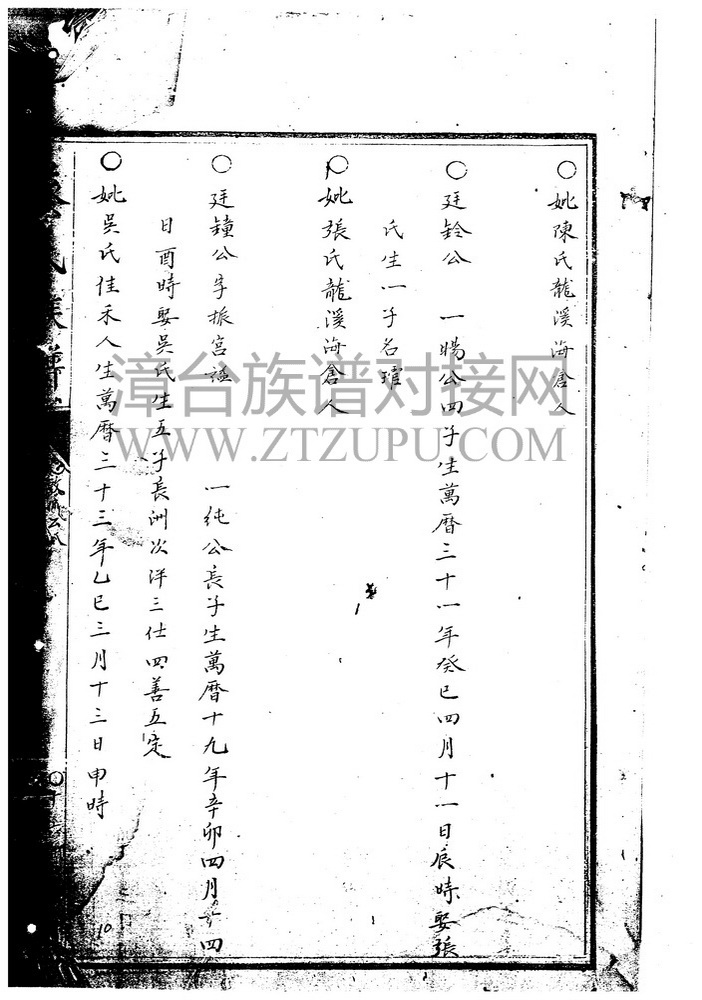 〇妣陳氏龍溪海倉人
〇廷鈴公 一暘公四子生萬曆三十一年癸巳四月十一日辰時娶張
氏生一子名瑄
〇妣張氏龍溪海倉人
〇廷鐘公字振宮諡 一純公長子生萬曆十九年辛卯四月廿四
日酉時娶吳氏生五子長洲次洋三仕四善五定
〇妣吳氏佳禾人生萬曆三十三年乙巳三月十三日申時
氏族譜
10
漳台族谱对接网
WWW.ZTZUPU.COM